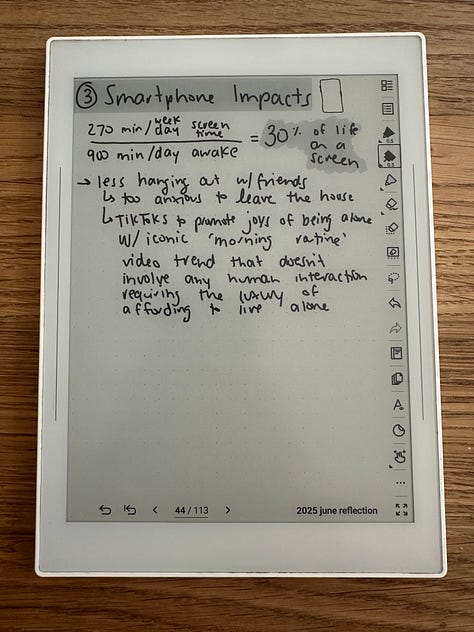 ③ Smartphone Impacts
270 min/weekday screen time
900 min/day awake
= 30% of life on a screen
→ less hanging out w/friends
↳ too anxious to leave the house
↳ TikToks to promote joys of being alone
w/ iconic 'morning routine'
video trend that doesn't
involve any human interaction
requiring the luxury of
affording to live alone
44 / 113
2025 june reflection
0.5
0.5